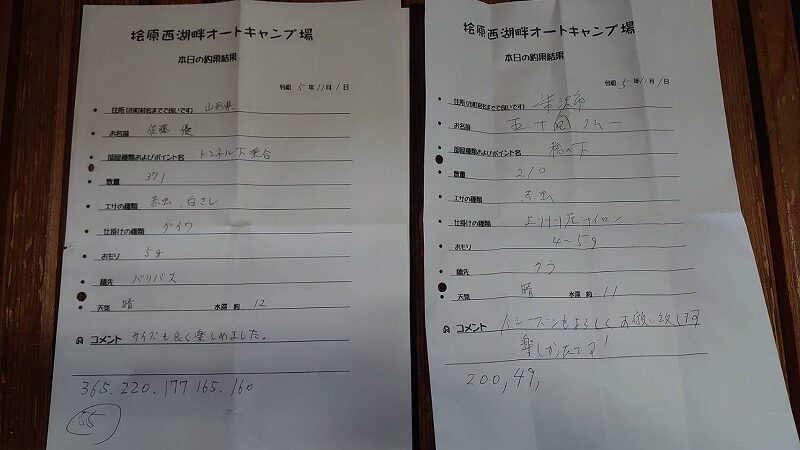 桧原西湖畔オートキャンプ場
本日の釣果結果
令和 5 年 11 月 1 日
住所(市町村名までで良いです) 山形県
お名前 佐藤 優
部屋種類およびポイント名 トンネル下 乗合
数量 371
エサの種類 赤虫 白さし
仕掛けの種類 ダイワ
おもり 5g
穂先 バリバス
天気 晴 水深 約 12
コメント サイズも良く楽しめました。
365. 220. 177. 165. 160
55
桧原西湖畔オートキャンプ場
本日の釣果結果
令和 5 年 11 月 1 日
住所(市町村名までで良いです) 米沢市
お名前 五十嵐
部屋種類およびポイント名 橋の下
数量 210
エサの種類 赤虫
仕掛けの種類 ナイロン
おもり 4~5g
穂先 クラ
天気 晴 水深 約 11
コメント 今シーズンもよろしくお願い致します
楽しかったです!
200, 49,